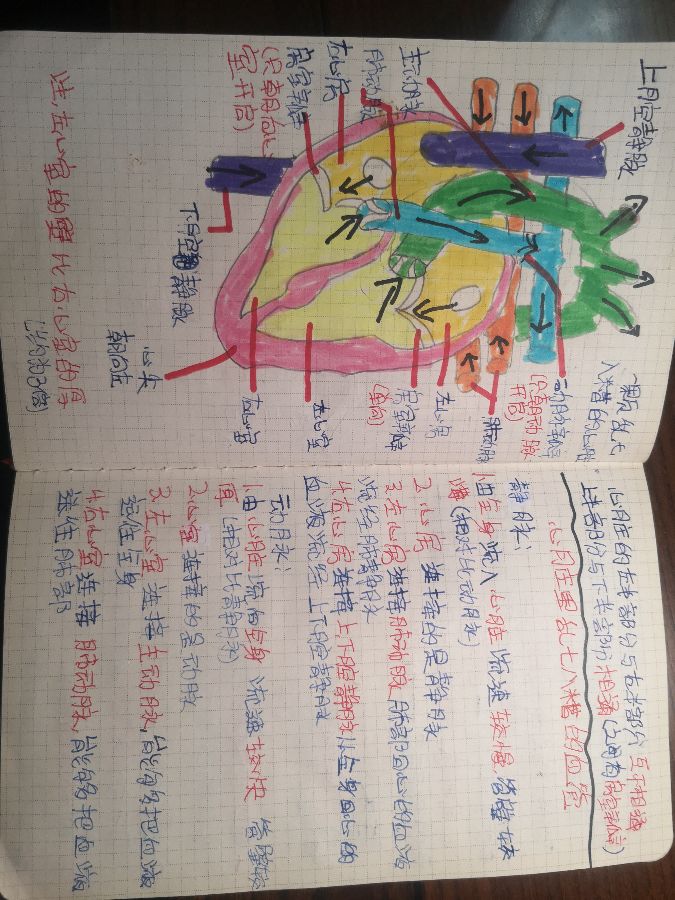 上腔静脉
主动脉
肺动脉
右心房
房室瓣
(只朝向心
室开启)
下腔静脉
一颗乱七
八糟的心脏
动脉瓣
(只朝动脉
开启)
肺静脉
左心房
房室瓣
左心室
右心室
心尖
朝向左
注:左心室的壁比右心室的厚
心脏的左半部分与右半部分互不相通
上半部分与下半部分相通(之间有房室瓣)
心脏里乱七八糟的血管
静脉:
1.由全身流入心脏 流速较慢,管壁较
薄(相对比动脉)
2.心房连接的是静脉
3.左心房连接肺动脉,肺部回心的血液
流经肺静脉
4.右心房连接上下腔静脉,从全身回心的
血液流经上下腔静脉
动脉:
1.由心脏流向全身 流速较快 管壁较
厚(相对比静脉)
2.心室连接的是动脉
3.左心室连接主动脉,能够把血液
运往全身
4.右心室连接肺动脉,能够把血液
运往肺部